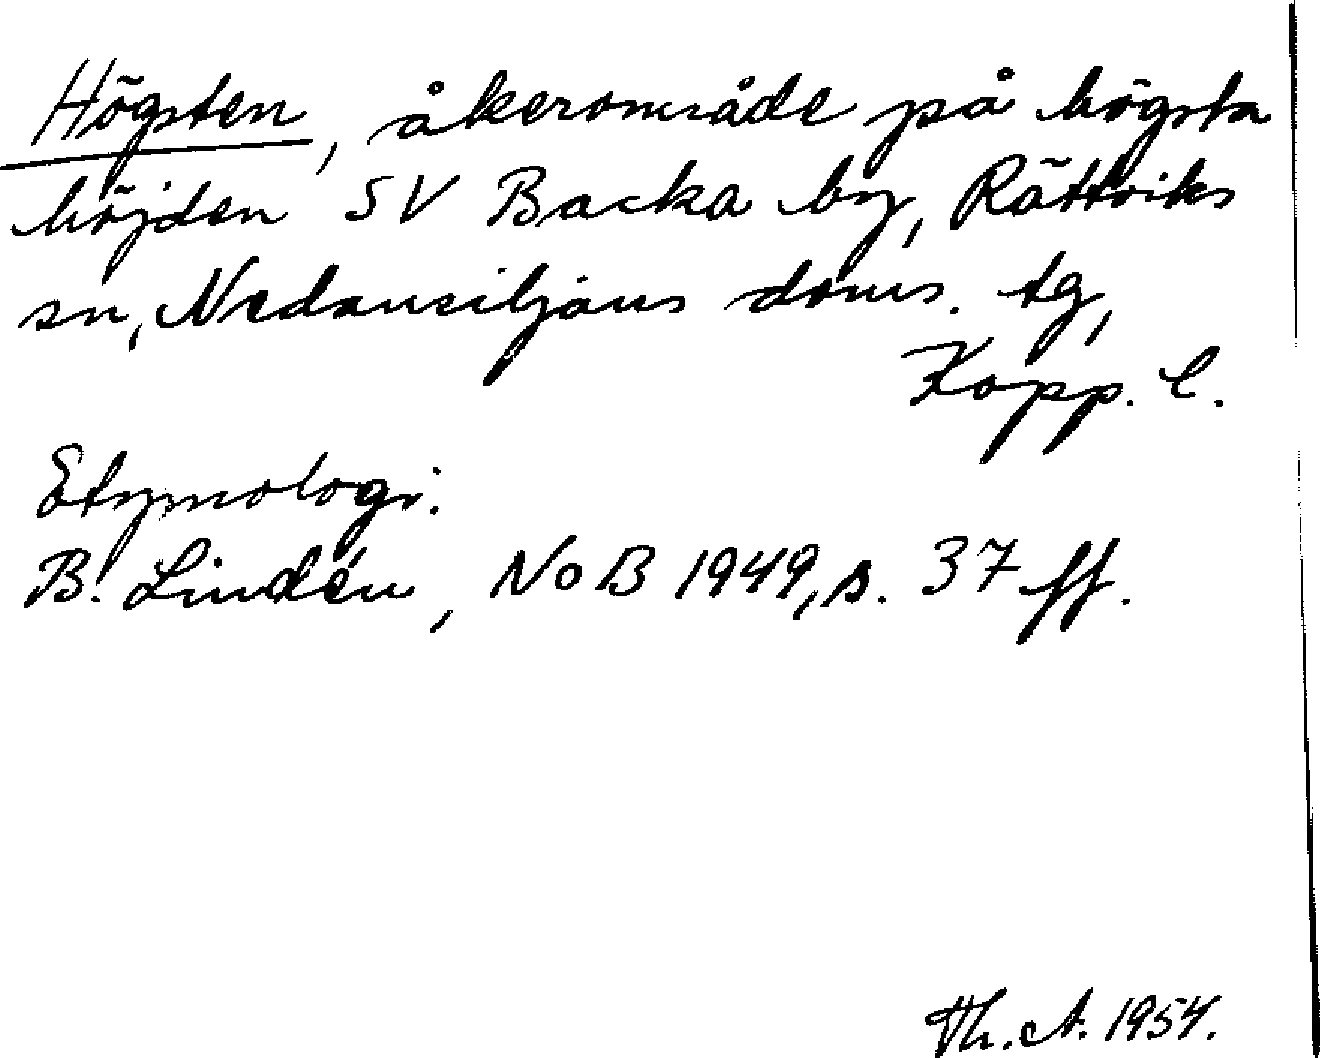 Högsten, åkerområde på högsta
höjden SV Backa by, Rättviks
sn, Nedansiljans doms. tg,
Kopp. l.
Etymologi.
B. Lindén, NoB 1949, s. 37 ff.
Th. A. 1954.